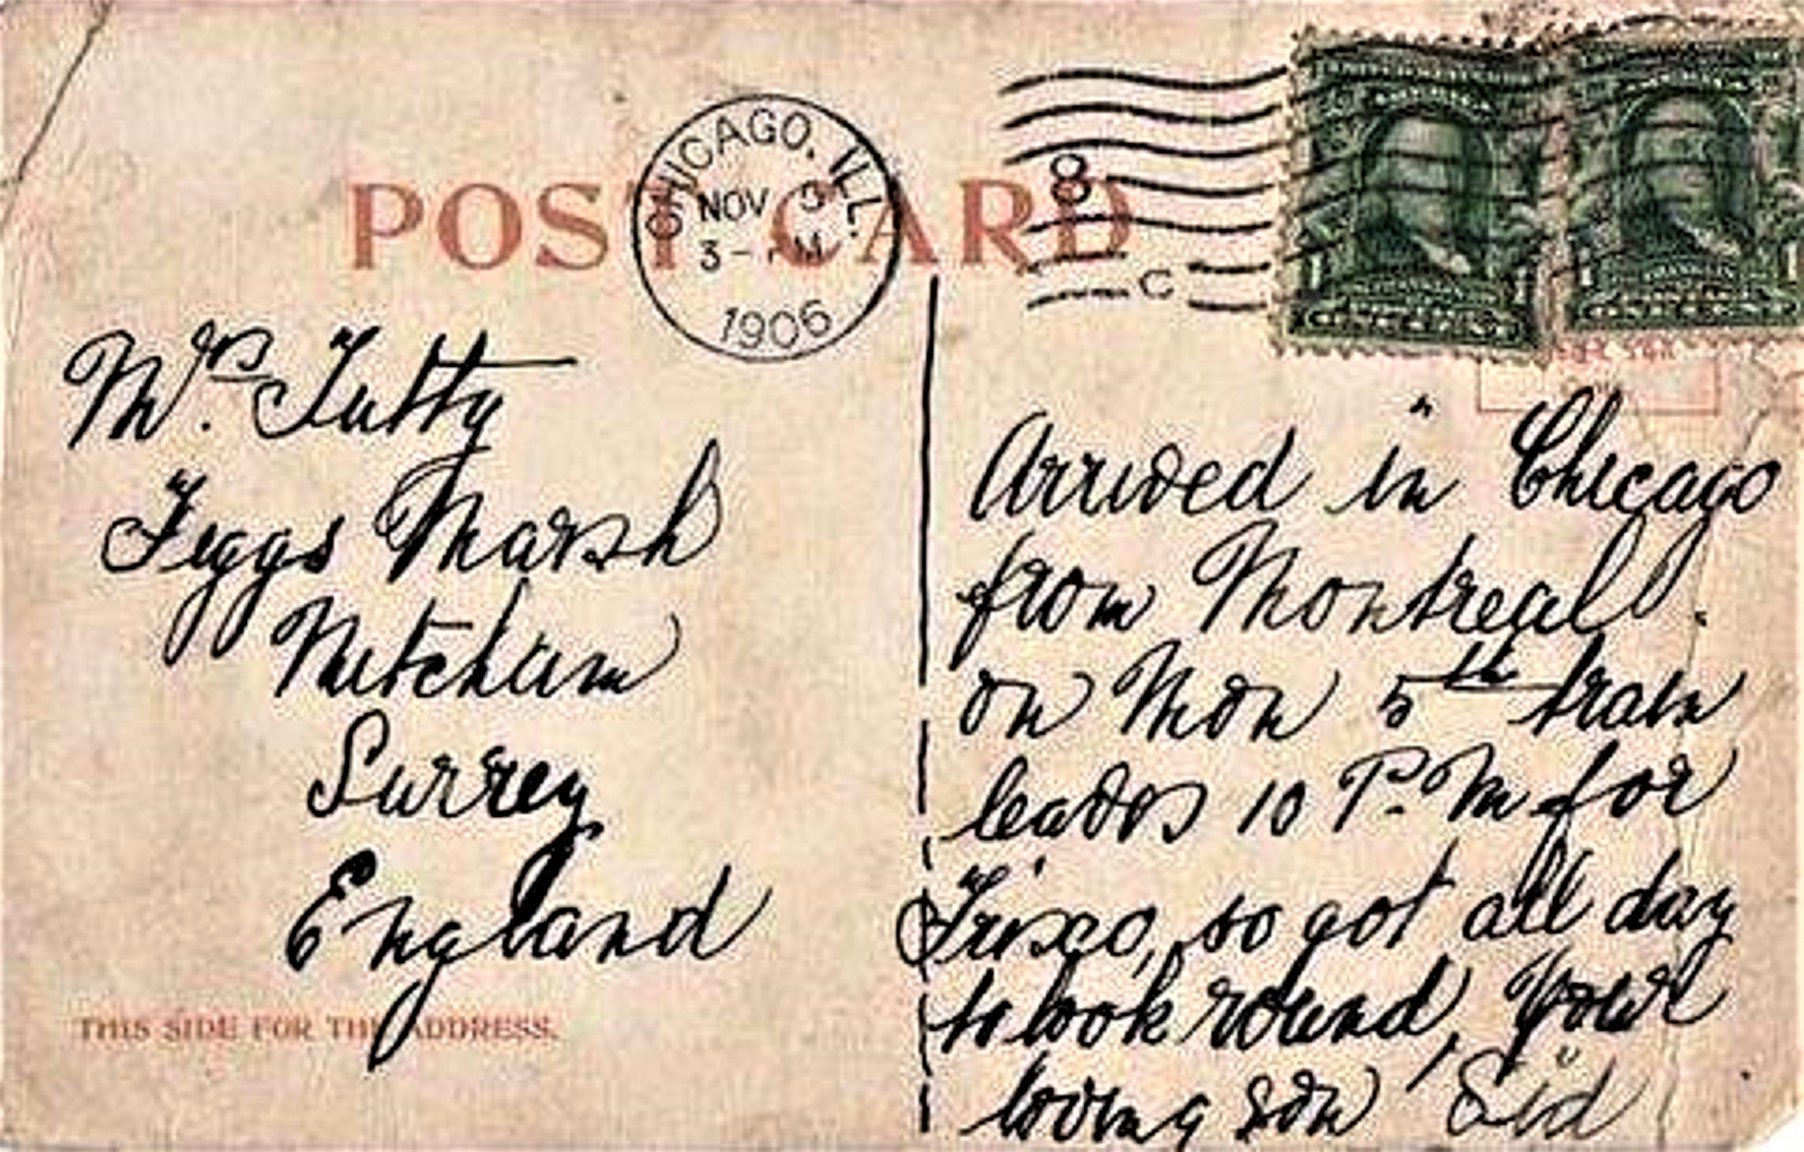 POST CARD
CHICAGO, ILL.
NOV 5
3 - PM
1906
8
C
Mrs. Tutty
Figgs Marsh
Mitcham
Surrey
England
THIS SIDE FOR THE ADDRESS.
Arrived in Chicago
from Montreal.
on Mon 5th train
leaves 10 P.M for
Frisco, so got all day
to look round, Your
loving son, Sid